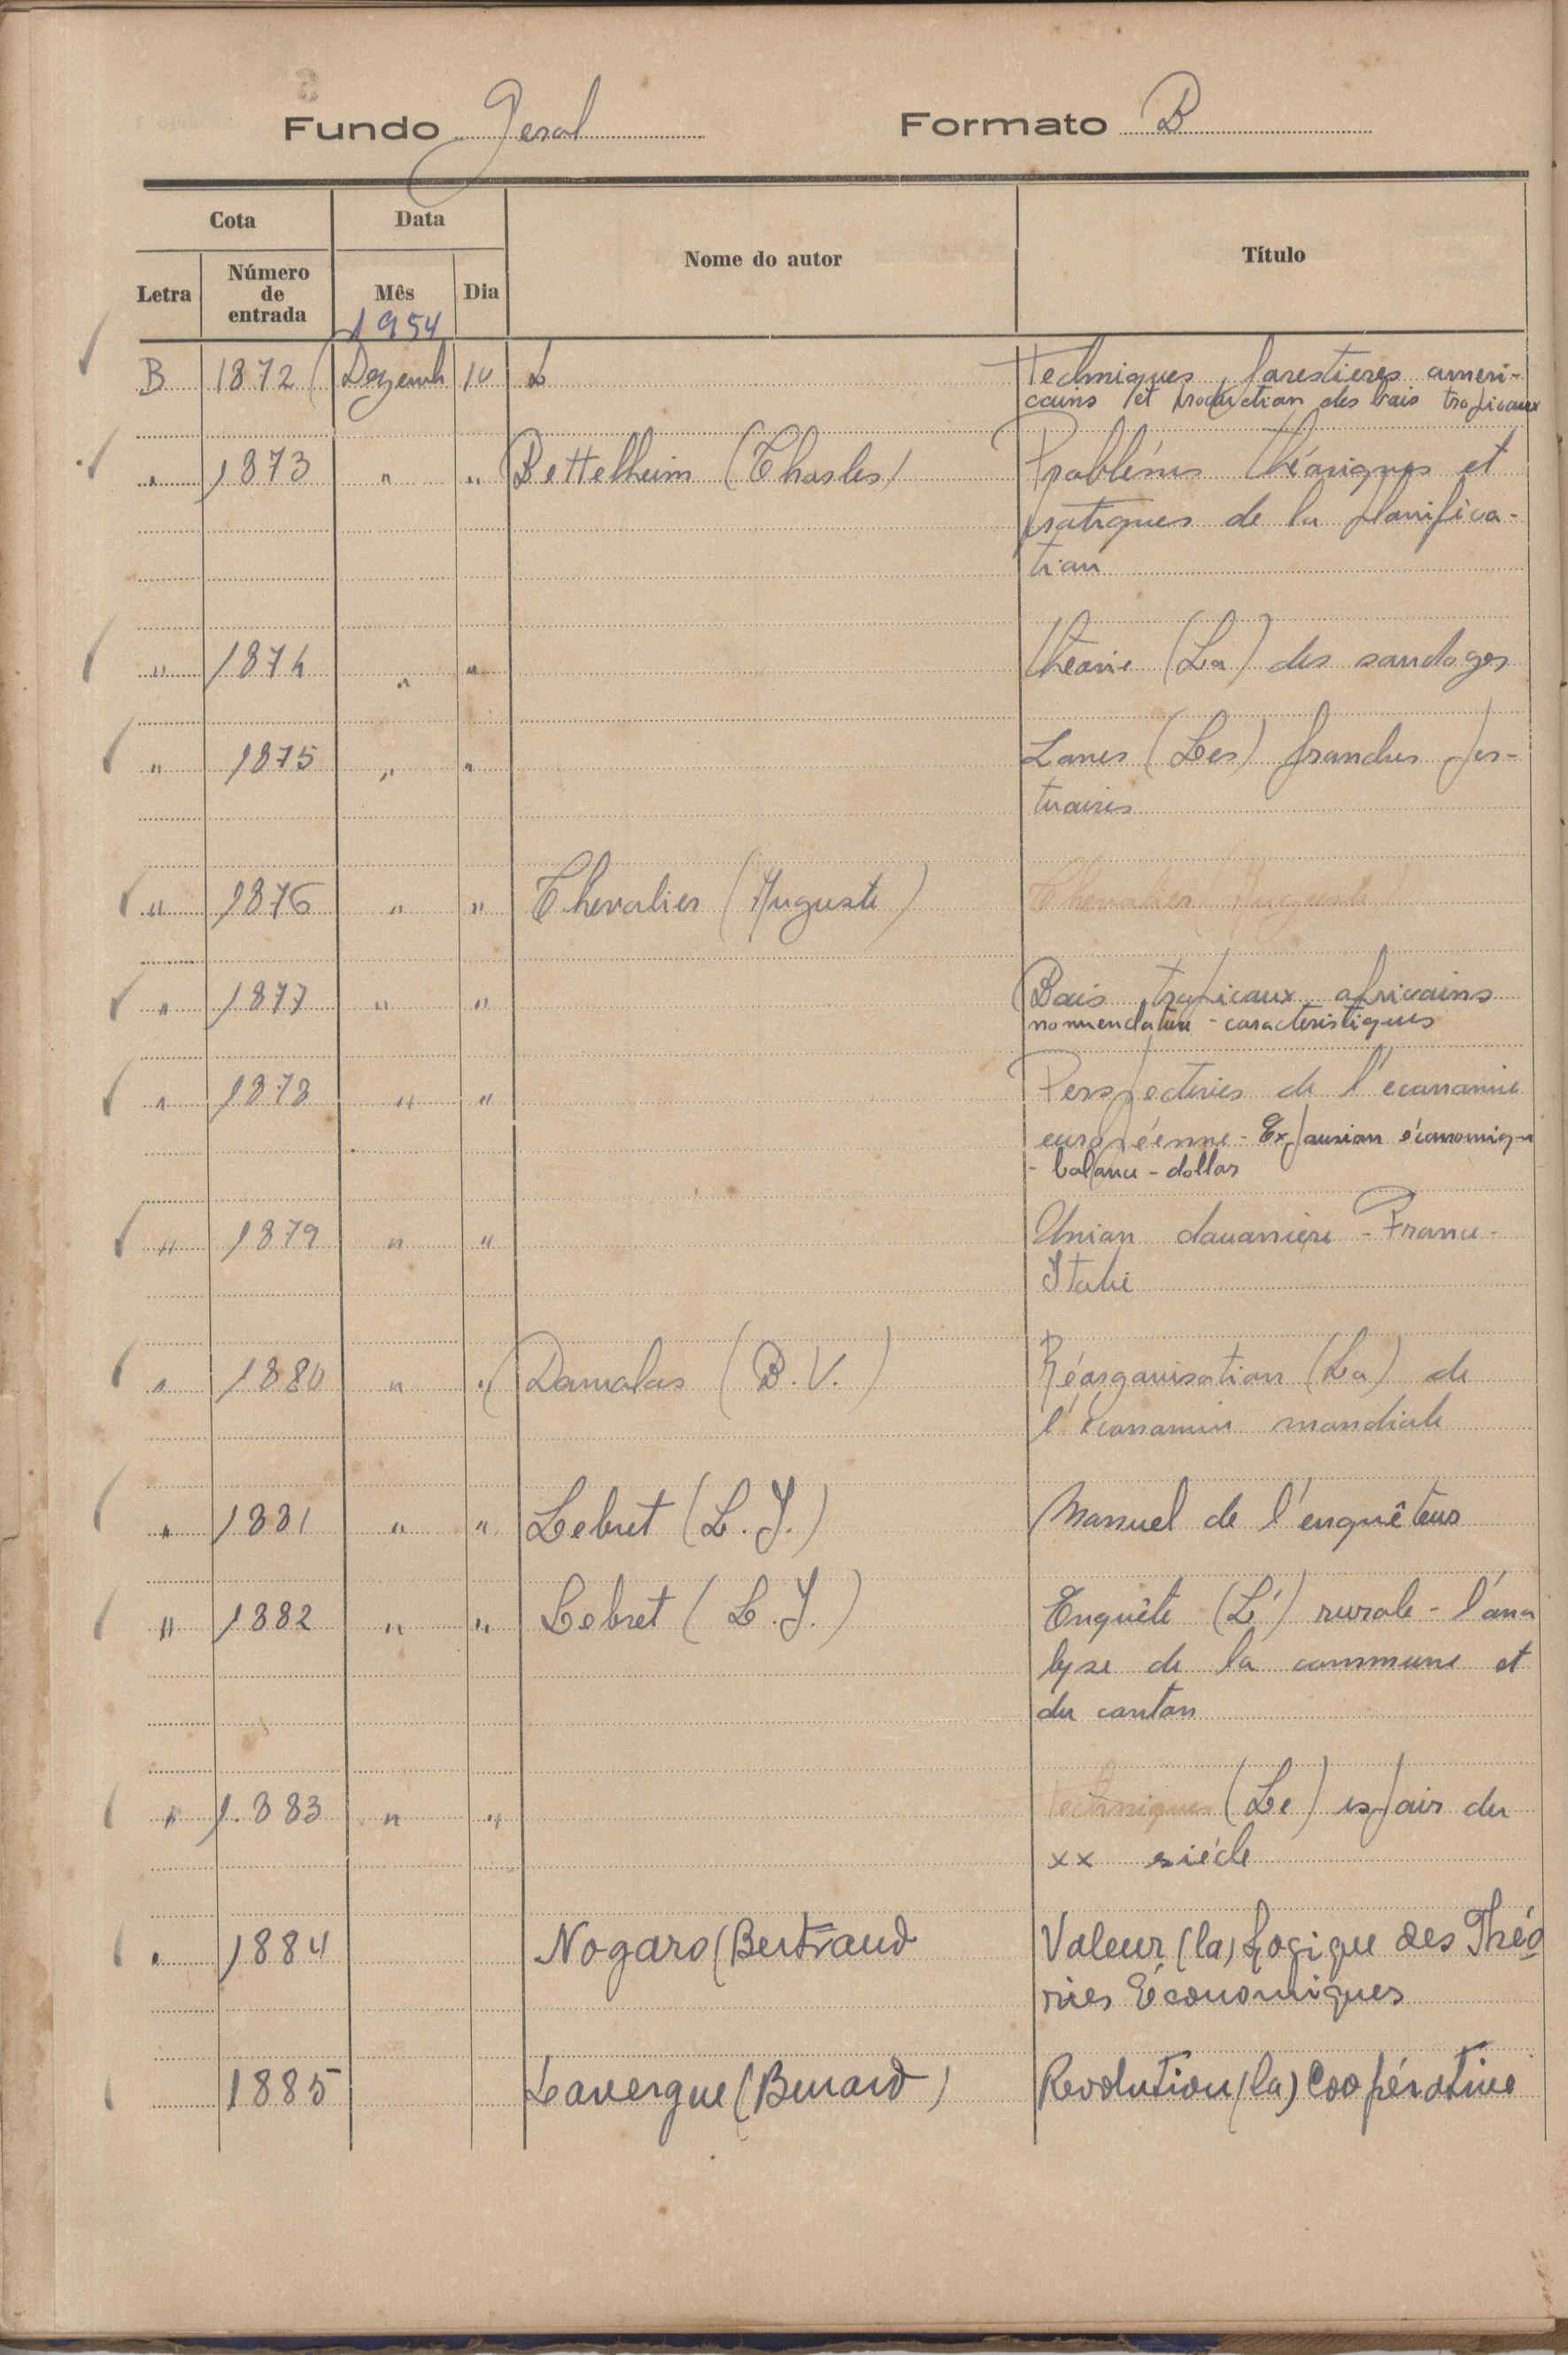 Fundo Geral Formato B
Cota Data Nome do autor Título
Letra Número de entrada Mês Dia
1954
B 1872 Dezemb 10 L Techniques forestieres ameri-
cains et production des bois tropicaux
" 1873 " " Bettelheim (Charles) Problémes théoriques et
pratiques de la planifica-
tion
" 1874 " " Théorie (La) des sondages
" 1875 " " Zones (Les) franches por-
tuaires
" 1876 " " Chevalier (Auguste) Chevalier (Auguste)
" 1877 " " Bois tropicaux africains
nomenclature - caracteristiques
" 1878 " " Perspectives de l'economie
européenne - Expansion économiqu
- balance - dollar
" 1879 " " Union douaniere - France -
Italie
" 1880 " " Damalas (B. V.) Réorganisation (La) de
l'économie mondiale
" 1881 " " Lebret (L. J.) Manuel de l'enquêteur
" 1882 " " Lebret (L. J.) Enquête (L') rurale - l'ana
lyse de la commune et
du canton
" 1883 " " Techniques (Le) espoir du
xx siécle
" 1884 Nogaro (Bertrand Valeur (la) Logique des Théo
ries Économiques
1885 Lavergne (Bernard) Revolution (la) Coopérative